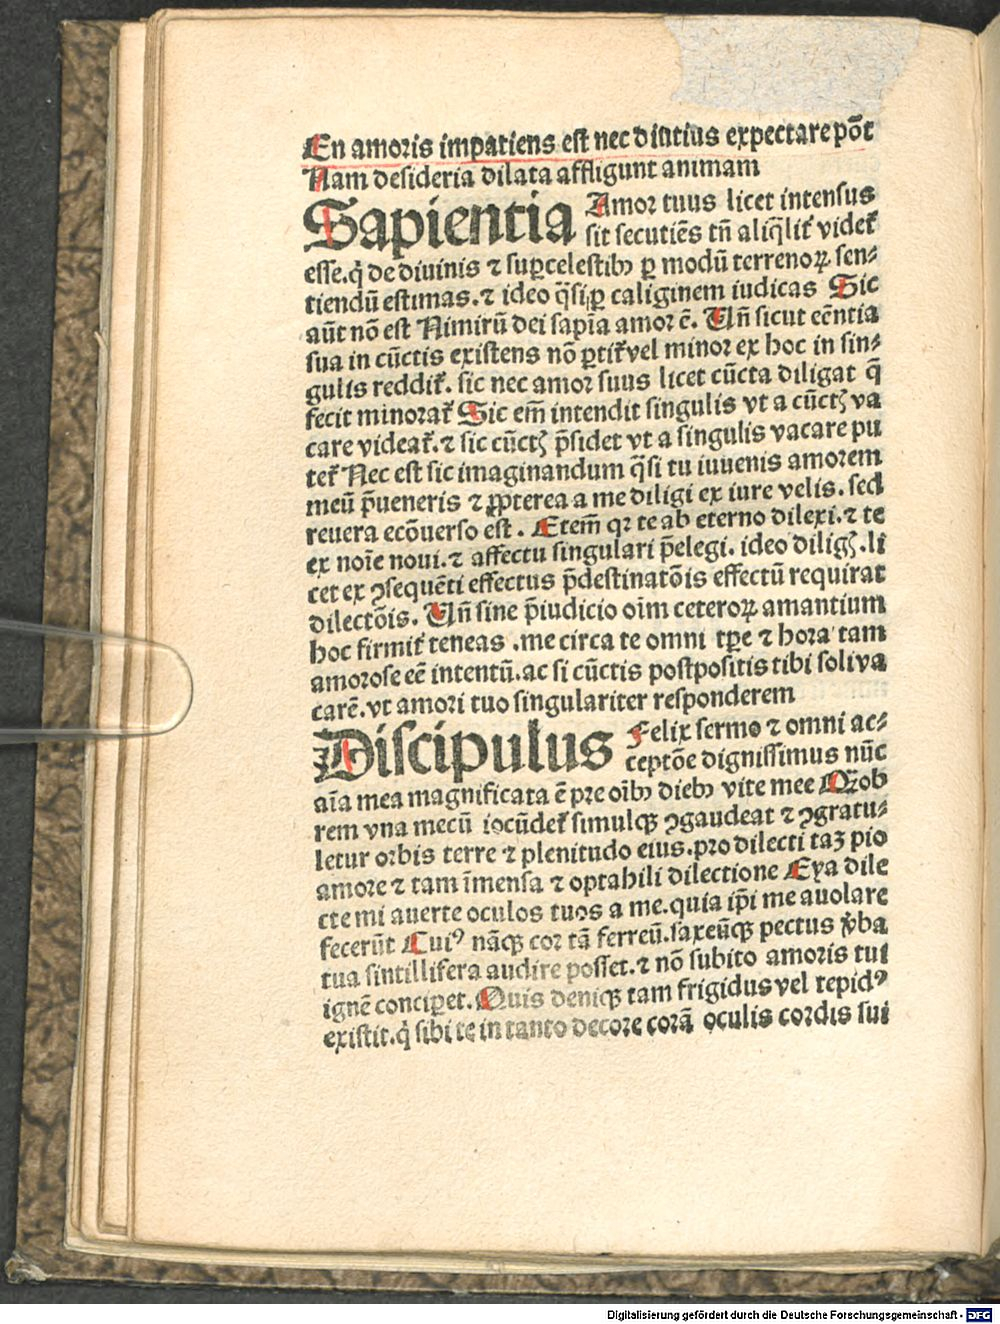 En amoris impatiens est nec diutius expectare põt
Nam desideria dilata affligunt animam
Sapientia Amor tuus licet intensus
sit secutiẽs tñ aliq̃lit᷑ videt᷑
esse.q̇ de diuinis ⁊ sup̲celestibꝫ p̲ modũ terrenoꝝ sen⸗
tiendũ estimas.⁊ ideo q̃si p̲ caliginem iudicas Sic
aũt nõ est Nimirũ dei sapĩa amor ẽ. Uñ sicut eẽntia
sua in cũctis existens nõ p̲tit᷑ vel minor ex hoc in sin⸗
gulis reddit᷑. sic nec amor suus licet cũcta diligat q̃
fecit minorat᷑ Sic em̃ intendit singulis vt a cũctꝭ va
care videat᷑.⁊ sic cũctꝭ p̃sidet vt a singulis vacare pu
tet᷑ Nec est sic imaginandum q̃si tu iuuenis amorem
meũ p̃ueneris ⁊ ꝓpterea a me diligi ex iure velis. sed
reuera ecõuerso est. Etem̃ qꝛ te ab eterno dilexi.⁊ te
ex noĩe noui.⁊ affectu singulari p̃elegi. ideo diligꝭ.li
cet ex ꝯsequẽti effectus p̃destinatõis effectũ requirat
dilectõis. Uñ sine p̃iudicio oĩm ceteroꝝ amantium
hoc firmit᷑ teneas .me circa te omni tp̲e ⁊ hora tam
amorose eẽ intentũ.ac si cũctis postpositis tibi soli va
carẽ.vt amori tuo singulariter responderem
Discipulus Felix sermo ⁊ omni ac⸗
ceptõe dignissimus nũc
aĩa mea magnificata ẽ pre oĩbꝫ diebꝫ vite mee Q̃ob
rem vna mecũ iocũdet᷑ simulqꝫ ꝯgaudeat ⁊ ꝯgratu⸗
letur orbis terre ⁊ plenitudo eius.pro dilecti taꝫ pio
amore ⁊ tam ĩmensa ⁊ optabili dilectione Eya dile
cte mi auerte oculos tuos a me.quia ip̃i me auolare
fecerũt Cuiꝰ nãqꝫ cor tã ferreũ.saxeũqꝫ pectus v̾ba
tua sintillifera audire posset.⁊ nõ subito amoris tui
ignẽ concip̲et. Quis deniqꝫ tam frigidus vel tepidꝰ
existit.q̇ sibi te in tanto decore corã oculis cordis sui
Digitalisierung gefördert durch die Deutsche Forschungsgemeinschaft - DFG